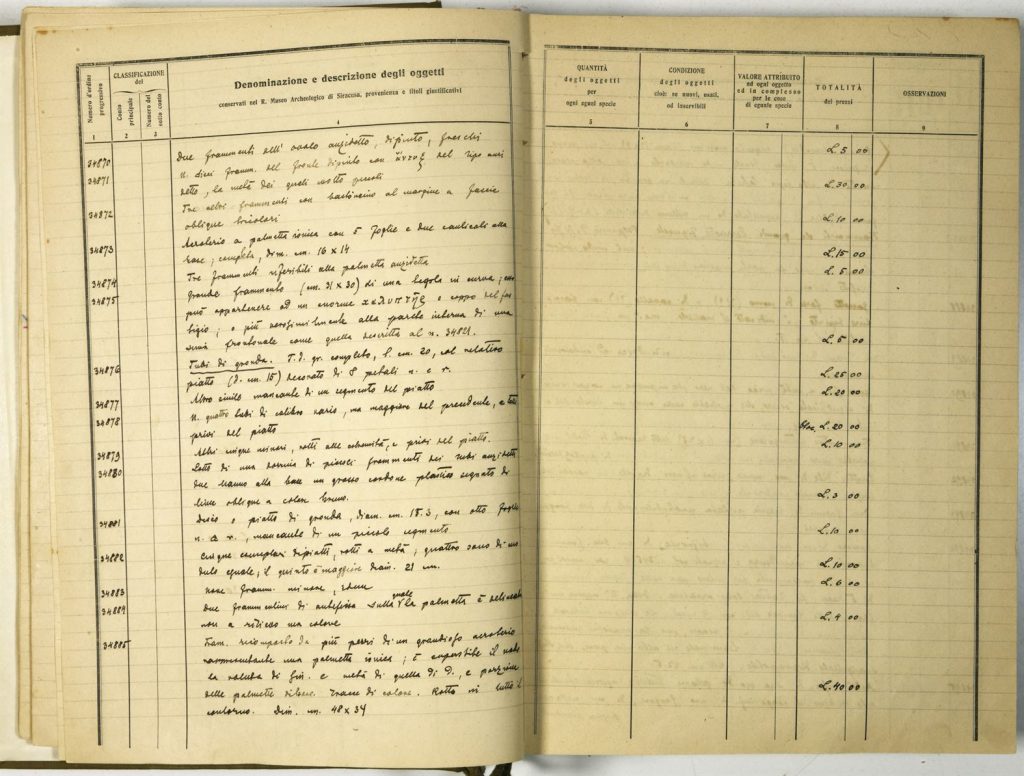 Numero d'ordine progressivo
CLASSIFICAZIONE del
Conto principale
Numero del sotto conto
Denominazione e descrizione degli oggetti
conservati nel R. Museo Archeologico di Siracusa, provenienza e titoli giustificativi
QUANTITÀ degli oggetti per ogni egual specie
CONDIZIONE degli oggetti cioè: se nuovi, usati, od inservibili
VALORE ATTRIBUITO ad ogni oggetto ed in complesso per le cose di eguale specie
TOTALITÀ dei prezzi
OSSERVAZIONI
1 2 3 4 5 6 7 8 9
34870 Due frammenti dell' ovolo anzidetto, dipinto, freschi L. 5 00
34871 N. dieci framm. del fronte dipinto con del tipo anzi
detto, la metà dei quali molto piccoli L. 30 00
34872 Tre altri frammenti con bastoncino al margine a fascie
oblique tricolori L. 10 00
34873 Acroterio a palmetta ionica con 5 foglie e due caulicoli alla
base; completa, dim. cm. 16 x 14 L. 15 00
34874 Tre frammenti riferibili alla palmetta anzidetta L. 5 00
34875 Grande frammento (cm. 31 x 30) di una tegola in curva;
può appartenere ad un enorme καλυπτήρ o coppo del fa
stigio; o più verosimilmente alla parete interna di una
sima frontonale come quella descritta al n. 34821. L. 5 00
34876 Tubi di gronda. T. d. gr. completo, l. cm. 20, col relativo
piatto (d. cm. 15) decorato di 8 petali n. e r. L. 25 00
34877 Altro simile mancante di un segmento del piatto L. 20 00
34878 N. quattro tubi di calibro vario, ma maggiore del precedente, e tutti
privi del piatto L. 20 00
34879 Altri cinque minori, rotti alle estremità, e privi del piatto. L. 10 00
34880 Lotto di una dozzina di piccoli frammenti dei tubi anzidetti
due hanno alla base un grosso cordone plastico segnato di
linee oblique a colore bruno. L. 3 00
34881 Disco o piatto di gronda, diam. cm. 18.3, con otto foglie
n. e r., mancante di un piccolo segmento L. 10 00
34882 Cinque esemplari di piatti, rotti a metà; quattro sono di mo
dulo eguale; il quinto è maggiore diam. 21 cm. L. 10 00
34883 Nove framm. minori, idem L. 6 00
34884 Due frammentini di antefissa sulla quale la palmetta è delineata
non a rilievo ma colore L. 4 00
34885 Fram. ricomposto da più pezzi di un grandioso acroterio
rappresentante una palmetta ionica; è superstite il nodo
la voluta di sin. e metà di quella di d., e porzione
delle palmette. Tracce di colore. Rotto in tutto il
contorno. Dim. cm. 48 x 34 L. 40 00